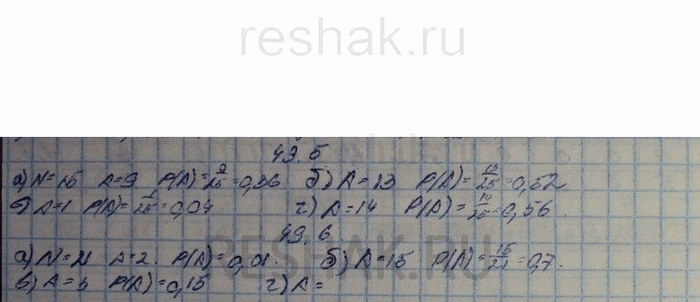 reshak.ru
49.5
а) N=25 A=9 P(A)=9/25=0,36 б) A=13 P(A)=13/25=0,52
в) A=1 P(A)=1/25=0,04 г) A=14 P(A)=14/25=0,56.
49.6
а) N=21 A=2. P(A)=0,01. б) A=15 P(A)=15/21=0,7.
в) A=4 P(A)=0,15 г) A=
RESHAK.RU